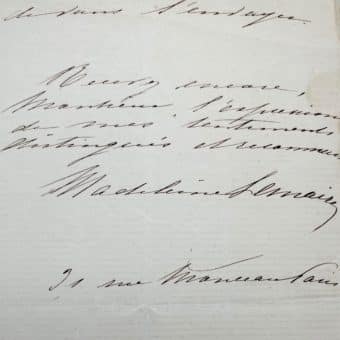 de vous l'envoyer.
Recevez encore,
Monsieur, l'expression
de mes sentiments
distingués et reconnai
Madeleine Lemaire
31 rue Monceau Paris